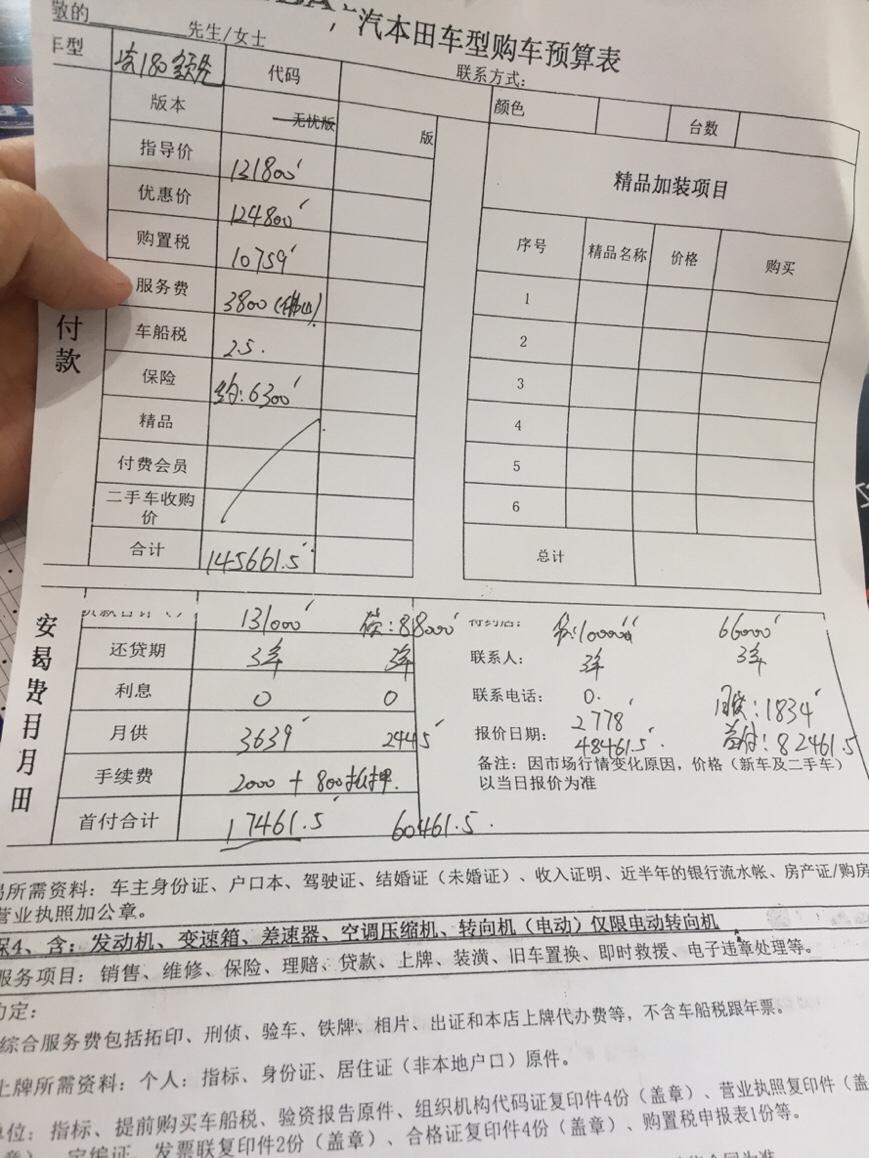 敬的 先生/女士
汽本田车型购车预算表
联系方式:
车型 180领先 代码
版本 无忧版 版
颜色 台数
指导价 131800
优惠价 124800
购置税 10759
服务费 3800(佛山)
车船税 2.5.
保险 约:6300
精品
付费会员
二手车收购价
合计 145661.5
付款
精品加装项目
序号 精品名称 价格 购买
1
2
3
4
5
6
总计
131000 88000
还贷期 3年 3年
利息 0 0
月供 3639 2445
手续费 2000 + 800抵押.
首付合计 17461.5 60461.5.
66000
联系人: 3年 3年
联系电话: 0.
报价日期: 2778 月供:1834
48461.5 首付:82461.5
备注:因市场行情变化原因,价格(新车及二手车)
以当日报价为准
所需资料:车主身份证、户口本、驾驶证、结婚证(未婚证)、收入证明、近半年的银行流水帐、房产证/购房
营业执照加公章。
保4、含:发动机、变速箱、差速器、空调压缩机、转向机(电动)仅限电动转向机
服务项目:销售、维修、保险、理赔、贷款、上牌、装潢、旧车置换、即时救援、电子违章处理等。
约定:
综合服务费包括拓印、刑侦、验车、铁牌、相片、出证和本店上牌代办费等,不含车船税跟年票。
上牌所需资料:个人:指标、身份证、居住证(非本地户口)原件。
单位:指标、提前购买车船税、验资报告原件、组织机构代码证复印件4份(盖章)、营业执照复印件(盖
章)、定编证、发票联复印件2份(盖章)、合格证复印件4份(盖章)、购置税申报表1份等。